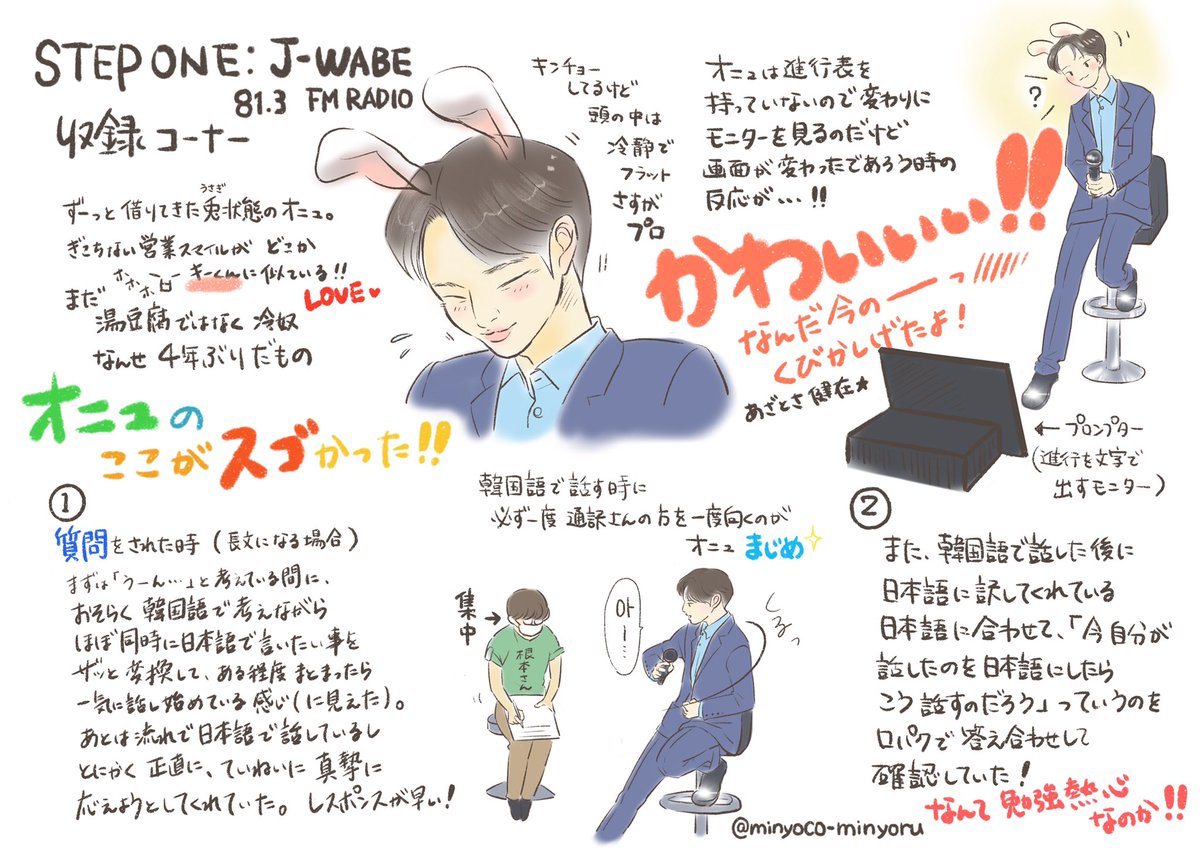 STEP ONE: J-WABE
81.3 FM RADIO
収録コーナー
ずーっと借りてきた兎状態のオニュ。
うさぎ
ぎこちない営業スマイルが どこか
ホホホーロ キーくんに似ている!!
LOVE♥
まだ
湯豆腐ではなく 冷奴
なんせ 4年ぶりだもの
キンチョー
してるけど
頭の中は
冷静で
フラット
さすが
プロ
オニュは進行表を
持っていないので変わりに
モニターを見るのだけど
画面が変わったであろう時の
反応が…!!
?
かわいぃぃ!!
なんだ今のーーっ
くびかしげたよ!
あざとさ健在★
←プロンプター
(進行を文字で
出すモニター)
オニュの
ここがスゴかった!!
①
質問をされた時(長文になる場合)
まずは「うーん…」と考えている間に、
おそらく韓国語で考えながら
ほぼ同時に日本語で言いたい事を
ザッと変換して、ある程度まとまったら
一気に話し始めている感じ(に見えた)。
あとは流れで日本語で話しているし
とにかく正直に、ていねいに真摯に
応えようとしてくれていた。レスポンスが早い!
韓国語で話す時に
必ず一度通訳さんの方を一度向くのが
オニュ まじめ
集中
→
根本さん
아ー…
くるっ
②
また、韓国語で話した後に
日本語に訳してくれている
日本語に合わせて、「今自分が
話したのを日本語にしたら
こう話すのだろう」っていうのを
口パクで答え合わせして
確認していた!
なんて勉強熱心
なのか!!
@minyoco-minyoru